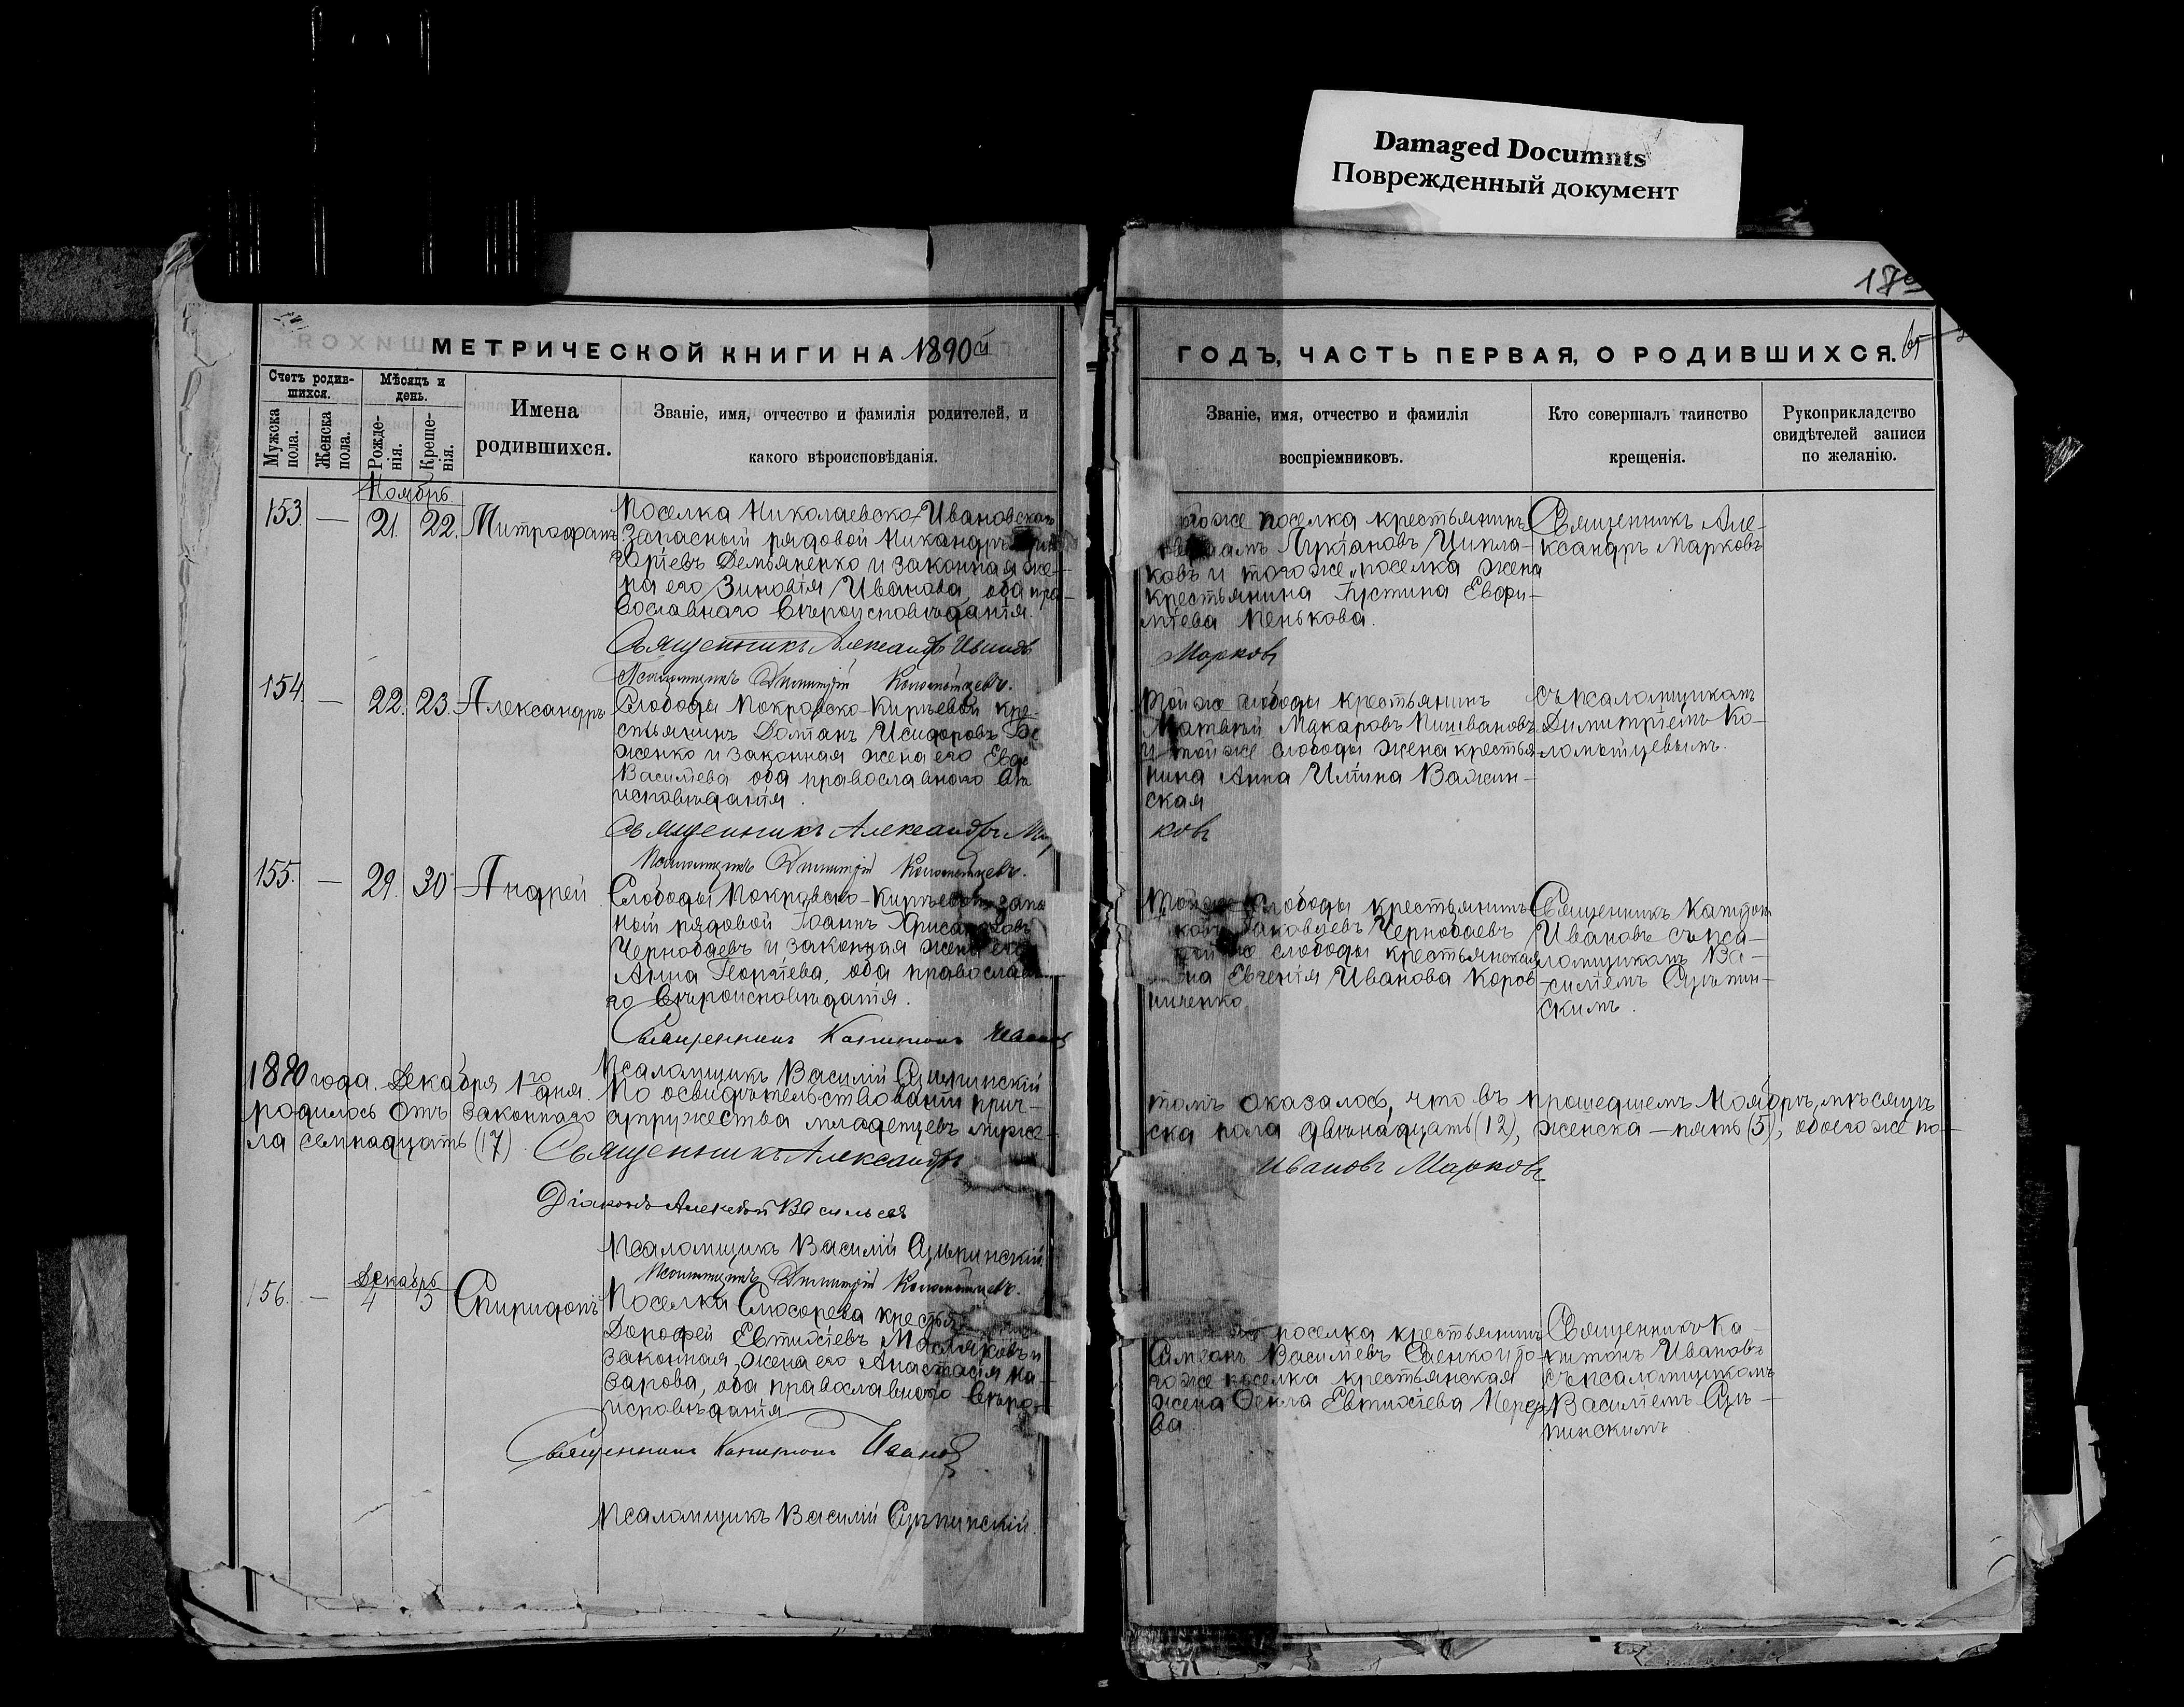 Damaged Documnts
Поврежденный документ
МЕТРИЧЕСКОЙ КНИГИ НА 1890й
ГОДЪ, ЧАСТЬ ПЕРВАЯ, О РОДИВШИХСЯ.
Счетъ родив-
шихся.
Мужска
пола.
Женска
пола.
Мѣсяцъ и
день.
Рожде-
нія.
Креще-
нія.
Имена
родившихся.
Званіе, имя, отчество и фамилія родителей, и
какого вѣроисповѣданія.
Званіе, имя, отчество и фамилія
воспріемниковъ.
Кто совершалъ таинство
крещенія.
Рукоприкладство
свидѣтелей записи
по желанію.
Ноябрь
153. — 21. 22. Митрофанъ
Поселка Николаевско-Ивановскаго
запасный рядовой Никандръ
горіевъ Демьяненко и законная же-
на его Зиновія Иванова, оба пра-
вославнаго вѣроисповѣданія.
Священникъ Александръ Ивановъ
Псаломщикъ Димитрій Коломыйцевъ.
тогоже поселка крестьянинъ
Лукіановъ Ципла-
ковъ и того же поселка жена
крестьянина Іустина Евфи-
міева Пенькова.
Марковъ
Священникъ Але-
ксандръ Марковъ
154. — 22. 23. Александръ
Слободы Покровско-Кирѣевой кре-
стьянинъ Долманъ Исидоровъ
женко и законная жена его
Васильева оба православнаго вѣ
исповѣданія.
Священникъ Александръ
Псаломщикъ Димитрій Коломыйцевъ.
Той же слободы крестьянинъ
Матвѣй Макаровъ Пишвановъ
и той же слободы жена крестья-
нина Анна Ильина Важин-
ская
ковъ
съ псаломщикомъ
Димитріемъ Ко-
ломыйцевымъ.
155. — 29. 30 Андрей
Слободы Покровско-Кирѣевой запа
ный рядовой Іоаннъ
Чернобаевъ и законная жена его
Анна Георгіева, оба православна
го вѣроисповѣданія.
Священникъ Капитонъ Ивановъ
Псаломщикъ Василій Сцѣпинскій
Той же слободы крестьянинъ
Яковлевъ Чернобаевъ
той же слободы крестьянская
на Евгенія Иванова Коров-
ниченко
Священникъ Капитонъ
Ивановъ съ пса-
ломщикомъ Ва-
силіемъ Сцѣпин-
скимъ.
1890 года. Декабря 1го дня. По освидѣтельствованіи прич-
томъ оказалось, что въ прошедшемъ Ноябрѣ мѣсяцѣ
родилось отъ законнаго супружества младенцевъ муже-
ска пола двѣнадцать (12), женска — пять (5), обоего же по-
ла семнадцать (17)
Священникъ Александръ
Ивановъ Марковъ
Діаконъ Алексѣй Васильевъ
Псаломщикъ Василій Сцѣпинскій
Псаломщикъ Димитрій Коломыйцевъ.
Декабрь
156. — 4 5 Спиридонъ
Поселка Слюсорева
Дорофей Евтихіевъ Масляковъ и
законная жена его Анастасія На-
зарова, оба православнаго вѣро-
исповѣданія.
Священникъ Капитонъ Ивановъ
Псаломщикъ Василій Сцѣпинскій.
поселка крестьянинъ
Симеонъ Васильевъ Саенко и то-
го же поселка крестьянская
жена Ѳекла Евтихіева
ва
Священникъ Ка-
питонъ Ивановъ
съ псаломщикомъ
Василіемъ Сцѣ-
пинскимъ